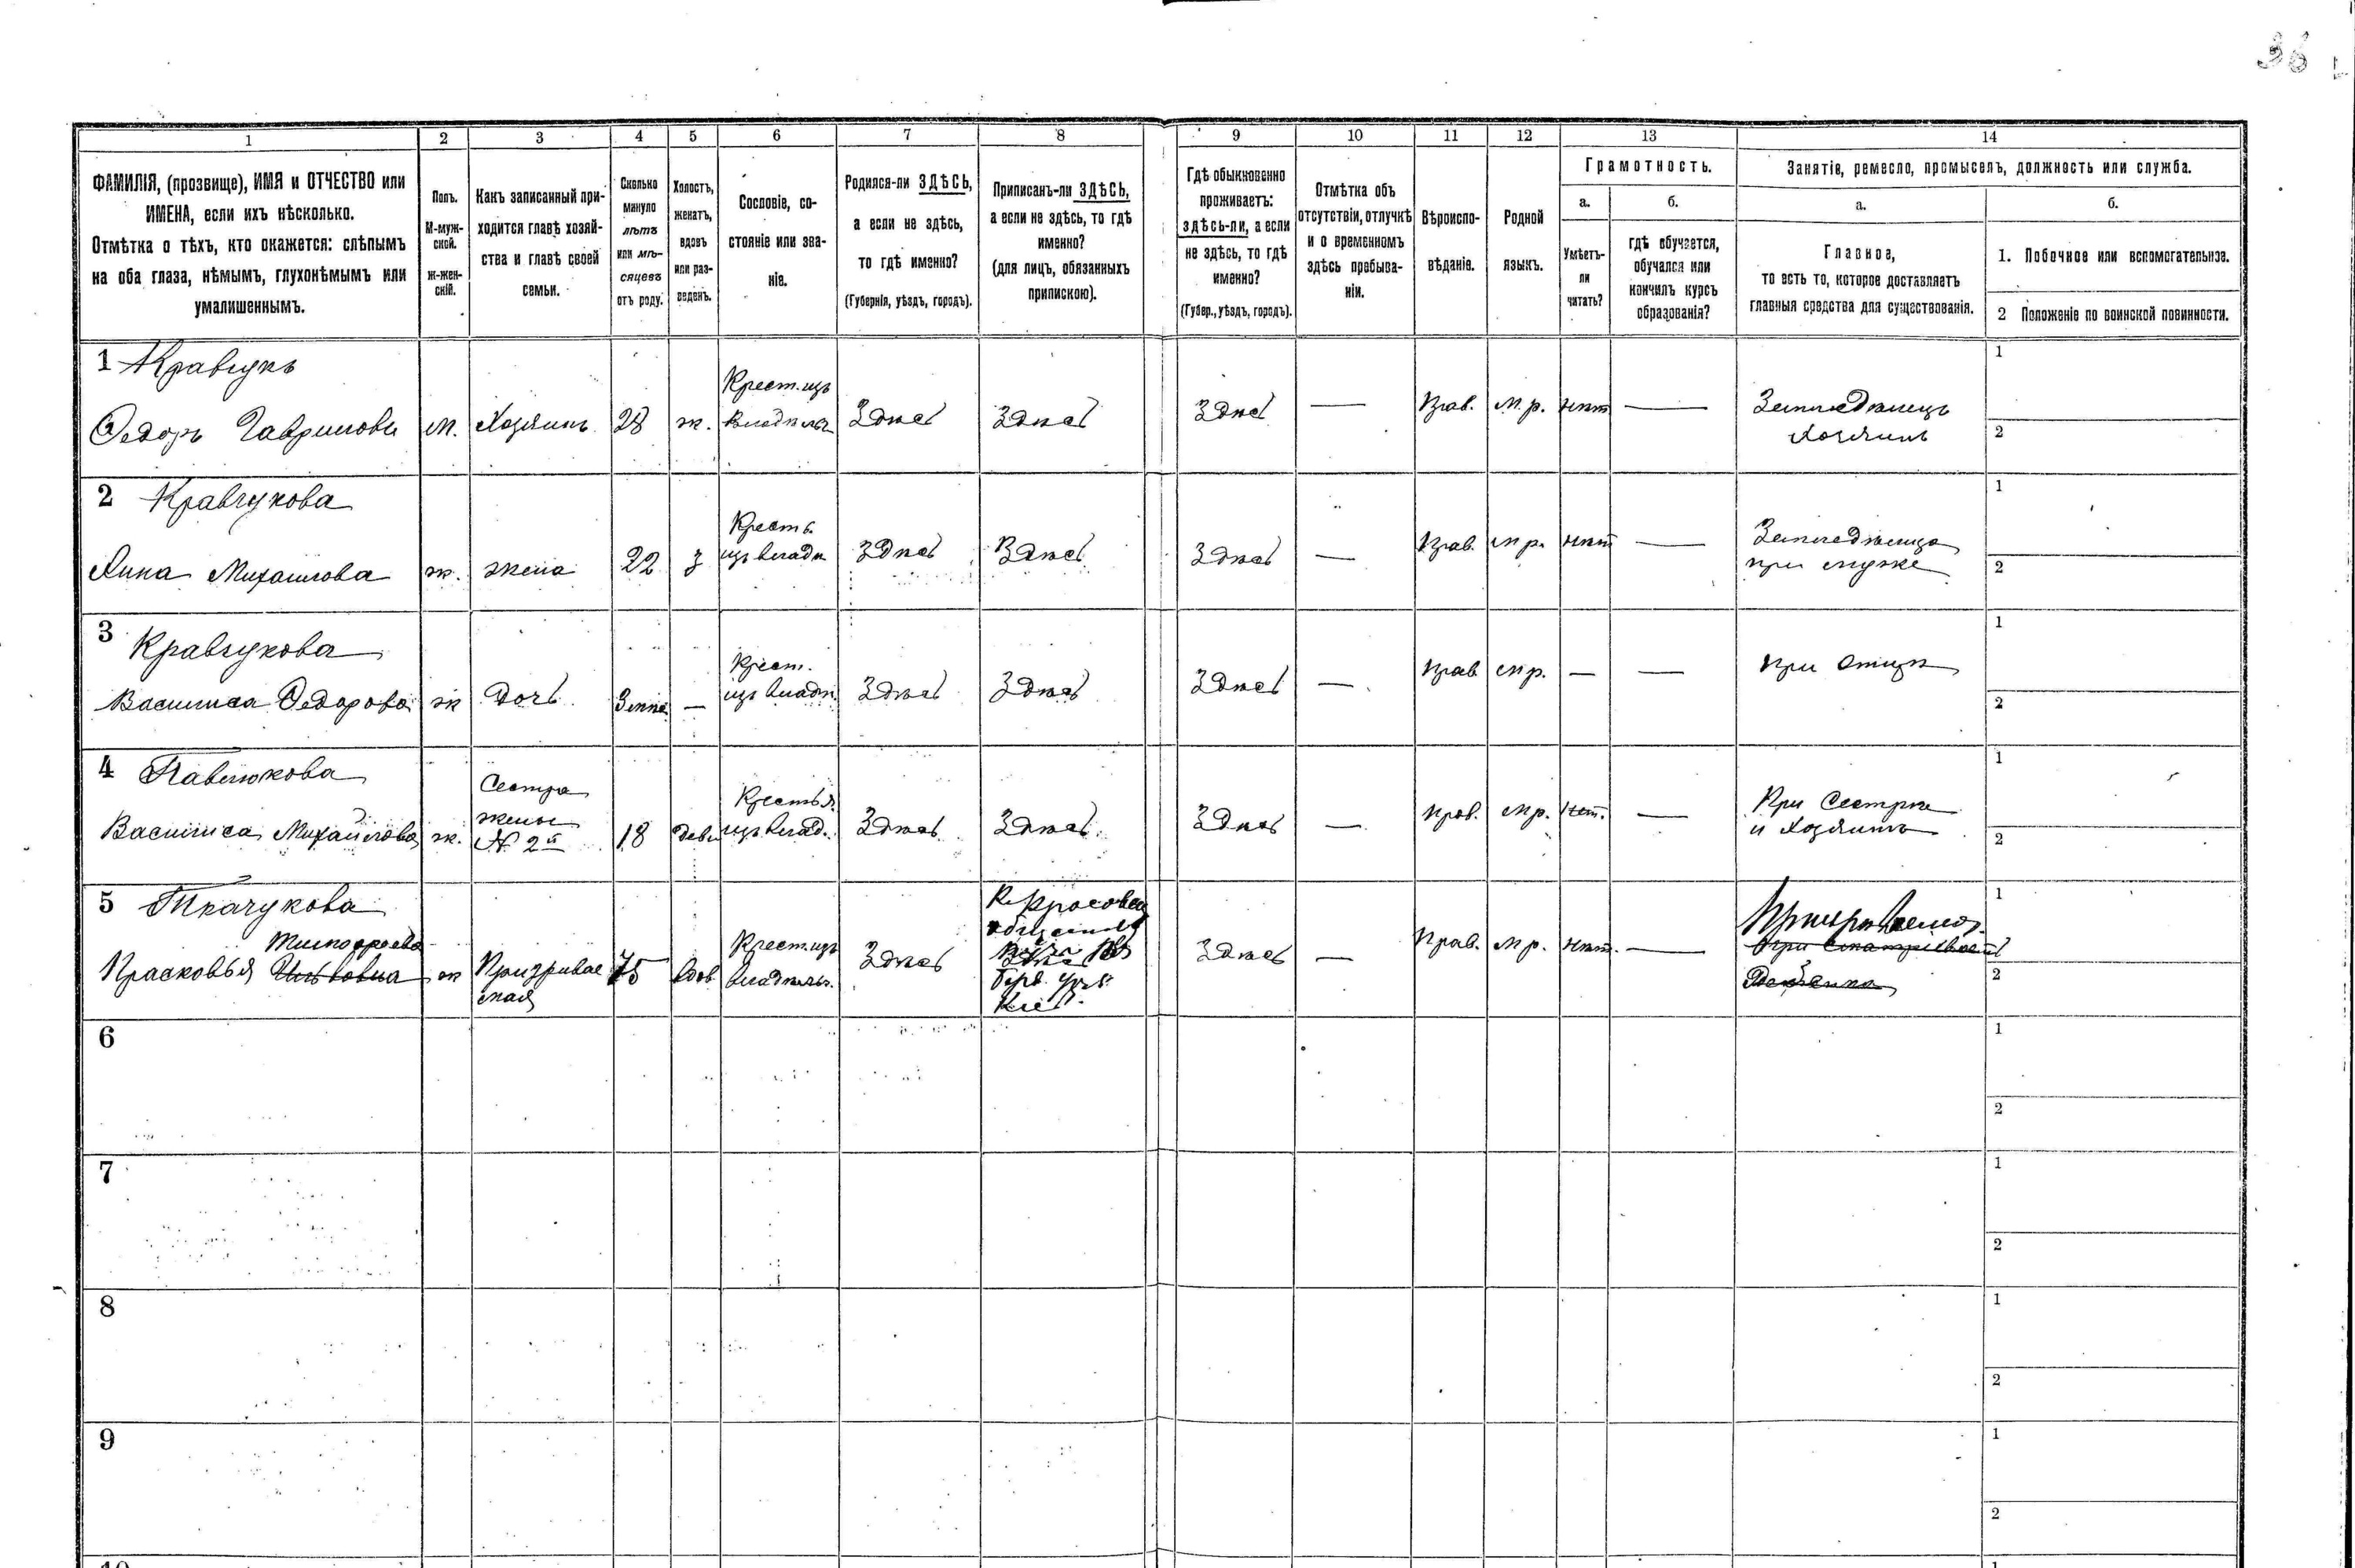 36
1
2
3
4
5
6
7
8
9
10
11
12
13
14
ФАМИЛІЯ, (прозвище), ИМЯ и ОТЧЕСТВО или
ИМЕНА, если ихъ нѣсколько.
Отмѣтка о тѣхъ, кто окажется: слѣпымъ
на оба глаза, нѣмымъ, глухонѣмымъ или
умалишеннымъ.
Полъ.
М-муж-
ской.
ж-жен-
скій.
Какъ записанный при-
ходится главѣ хозяй-
ства и главѣ своей
семьи.
Сколько
минуло
лѣтъ
или мѣ-
сяцевъ
отъ роду.
Холостъ,
женатъ,
вдовъ
или раз-
веденъ.
Сословіе, со-
стояніе или зва-
ніе.
Родился-ли ЗДѢСЬ,
а если не здѣсь,
то гдѣ именно?
(Губернія, уѣздъ, городъ).
Приписанъ-ли ЗДѢСЬ,
а если не здѣсь, то гдѣ
именно?
(для лицъ, обязанныхъ
припискою).
Гдѣ обыкновенно
проживаетъ:
здѣсь-ли, а если
не здѣсь, то гдѣ
именно?
(Губер., уѣздъ, городъ).
Отмѣтка объ
отсутствіи, отлучкѣ
и о временномъ
здѣсь пребыва-
ніи.
Вѣроиспо-
вѣданіе.
Родной
языкъ.
Грамотность.
а.
Умѣетъ-
ли
читать?
б.
гдѣ обучается,
обучался или
кончилъ курсъ
образованія?
Занятіе, ремесло, промыселъ, должность или служба.
а.
Главное,
то есть то, которое доставляетъ
главныя средства для существованія.
б.
1. Побочное или вспомогательное.
2 Положеніе по воинской повинности.
1 Кравчукъ
Федоръ Гаврилови
м.
Хозяинъ
28
ж.
Крест. изъ
владѣльч
Здѣсь
Здѣсь
Здѣсь
—
Прав.
м. р.
нѣт
—
Земледѣлецъ
Хозяинъ
1
2
2 Кравчукова
Анна Михаилова
ж.
жена
22
з
Крестья
изъ владѣ
Здѣсь
Здѣсь
Здѣсь
—
Прав.
м р.
нѣт
—
Земледѣлица
при мужѣ
1
2
3 Кравчукова
Василиса Федорова
ж
дочь
3 лѣта
—
Крест.
изъ владѣ
Здѣсь
Здѣсь
Здѣсь
—
Прав
м р.
—
—
При отцѣ
1
2
4 Павлюкова
Василиса Михайлова
ж.
Сестра
жены
№ 2й
18
деви
Крестья
изъ влад.
Здѣсь
Здѣсь
Здѣсь
—
Прав.
м р.
нет.
—
При Сестрѣ
и Хозяинѣ
1
2
5 Ткачукова
Тимофеева
Прасковья
ж
Призривае
мая
75
вдов
Крест. изъ
владѣльч.
Здѣсь
общества
уѣз.
Кіев.
Здѣсь
—
Прав.
м р.
нѣт.
—
Призриваемая
1
2
6
1
2
7
1
2
8
1
2
9
1
2